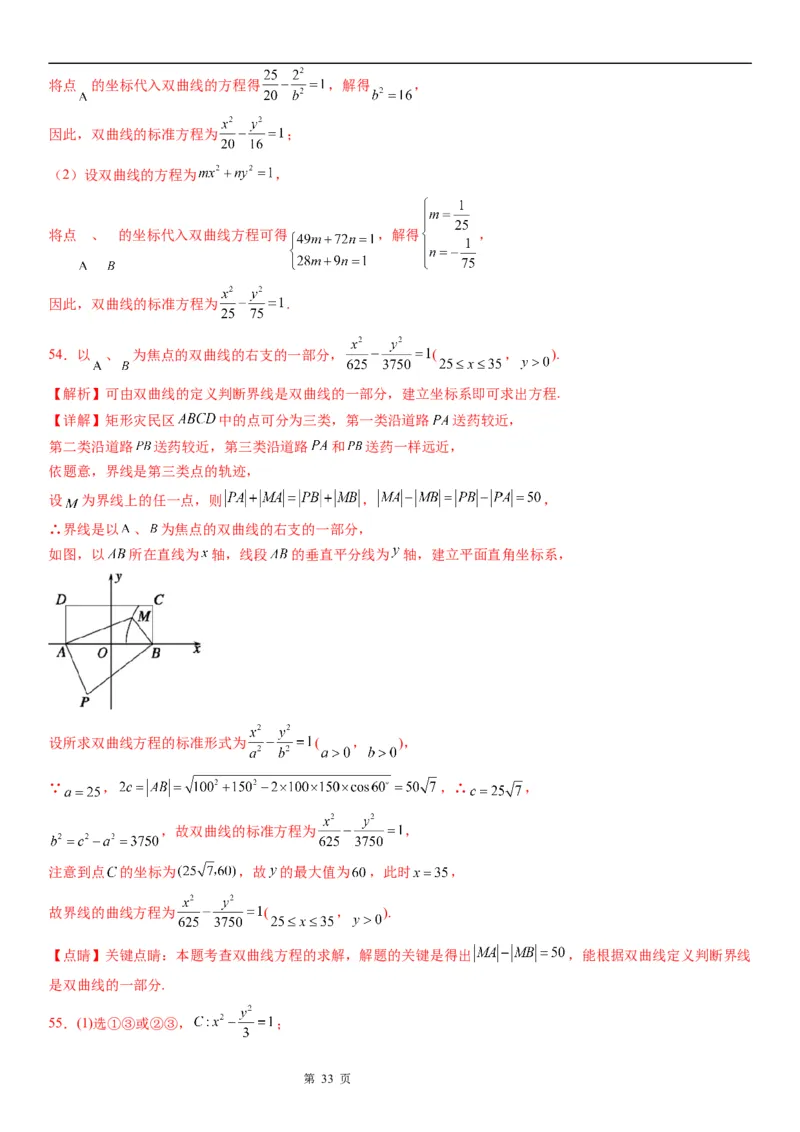 将点 A 的坐标代入双曲线的方程得 25/20 − 2²/b² = 1，解得 b² = 16，
因此，双曲线的标准方程为 x²/20 − y²/16 = 1；
（2）设双曲线的方程为 mx² + ny² = 1，
将点 A、B 的坐标代入双曲线方程可得 {49m + 72n = 1, 28m + 9n = 1，解得 {m = 1/25, n = −1/75，
因此，双曲线的标准方程为 x²/25 − y²/75 = 1.
54．以 A、B 为焦点的双曲线的右支的一部分，x²/625 − y²/3750 = 1(25 ≤ x ≤ 35，y > 0).
【解析】可由双曲线的定义判断界线是双曲线的一部分，建立坐标系即可求出方程.
【详解】矩形灾民区 ABCD 中的点可分为三类，第一类沿道路 PA 送药较近，
第二类沿道路 PB 送药较近，第三类沿道路 PA 和 PB 送药一样远近，
依题意，界线是第三类点的轨迹，
设 M 为界线上的任一点，则 |PA| + |MA| = |PB| + |MB|，|MA| − |MB| = |PB| − |PA| = 50，
∴界线是以 A、B 为焦点的双曲线的右支的一部分，
如图，以 AB 所在直线为 x 轴，线段 AB 的垂直平分线为 y 轴，建立平面直角坐标系，
y
D C
M
A O B x
P
设所求双曲线方程的标准形式为 x²/a² − y²/b² = 1(a > 0，b > 0)，
∵ a = 25，2c = |AB| = √(100² + 150² − 2×100×150×cos60°) = 50√7，∴ c = 25√7，
b² = c² − a² = 3750，故双曲线的标准方程为 x²/625 − y²/3750 = 1，
注意到点 C 的坐标为 (25√7,60)，故 y 的最大值为 60，此时 x = 35，
故界线的曲线方程为 x²/625 − y²/3750 = 1(25 ≤ x ≤ 35，y > 0).
【点睛】关键点睛：本题考查双曲线方程的求解，解题的关键是得出 |MA| − |MB| = 50，能根据双曲线定义判断界线
是双曲线的一部分.
55．(1)选①③或②③，C : x² − y²/3 = 1；
第 33 页